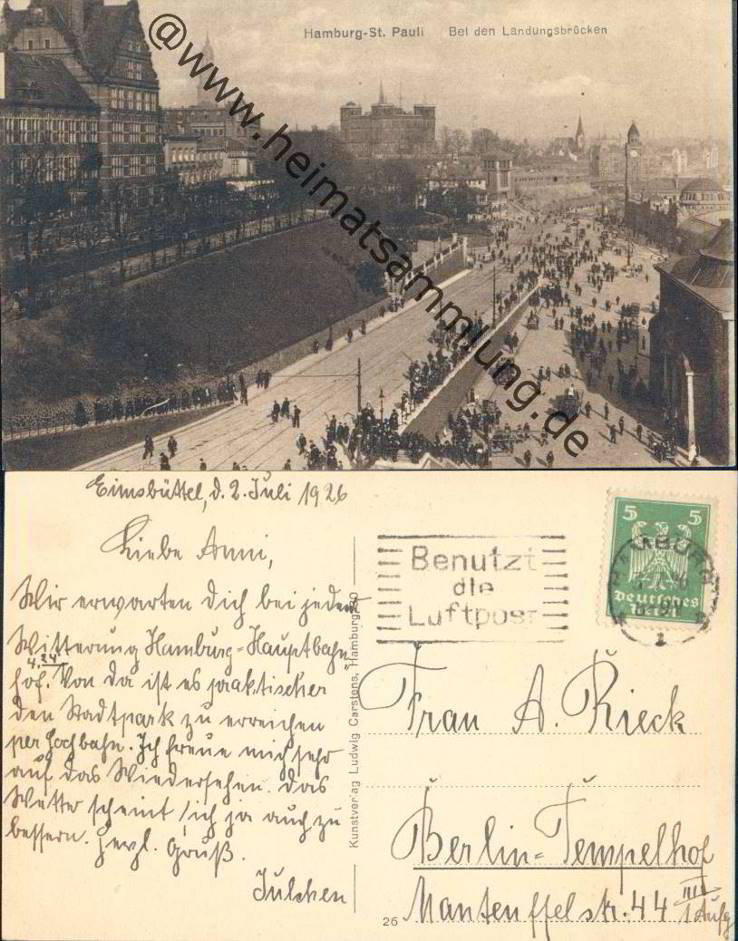 Hamburg-St. Pauli Bei den Landungsbrücken
@www.heimatsammlung.de
Eimsbüttel, d. 2. Juli 1926
Liebe Anni,
Wir erwarten Dich bei jedem
Witterung Hamburg-Hauptbahn-
4.24
hof. Von da ist es praktischer
den Stadtpark zu erreichen
per Hochbahn. Ich freue mich sehr
auf das Wiedersehen. Das
Wetter scheint sich ja auch zu
bessern. Herzl. Gruß.
Julchen
Kunstverlag Ludwig Carstens, Hamburg
26
Benutzt
die
Luftpost
5 5
Deutsches
Reich
HAMBURG
1
Frau A. Rieck
Berlin-Tempelhof
Manteuffelstr. 44 III
Aufg